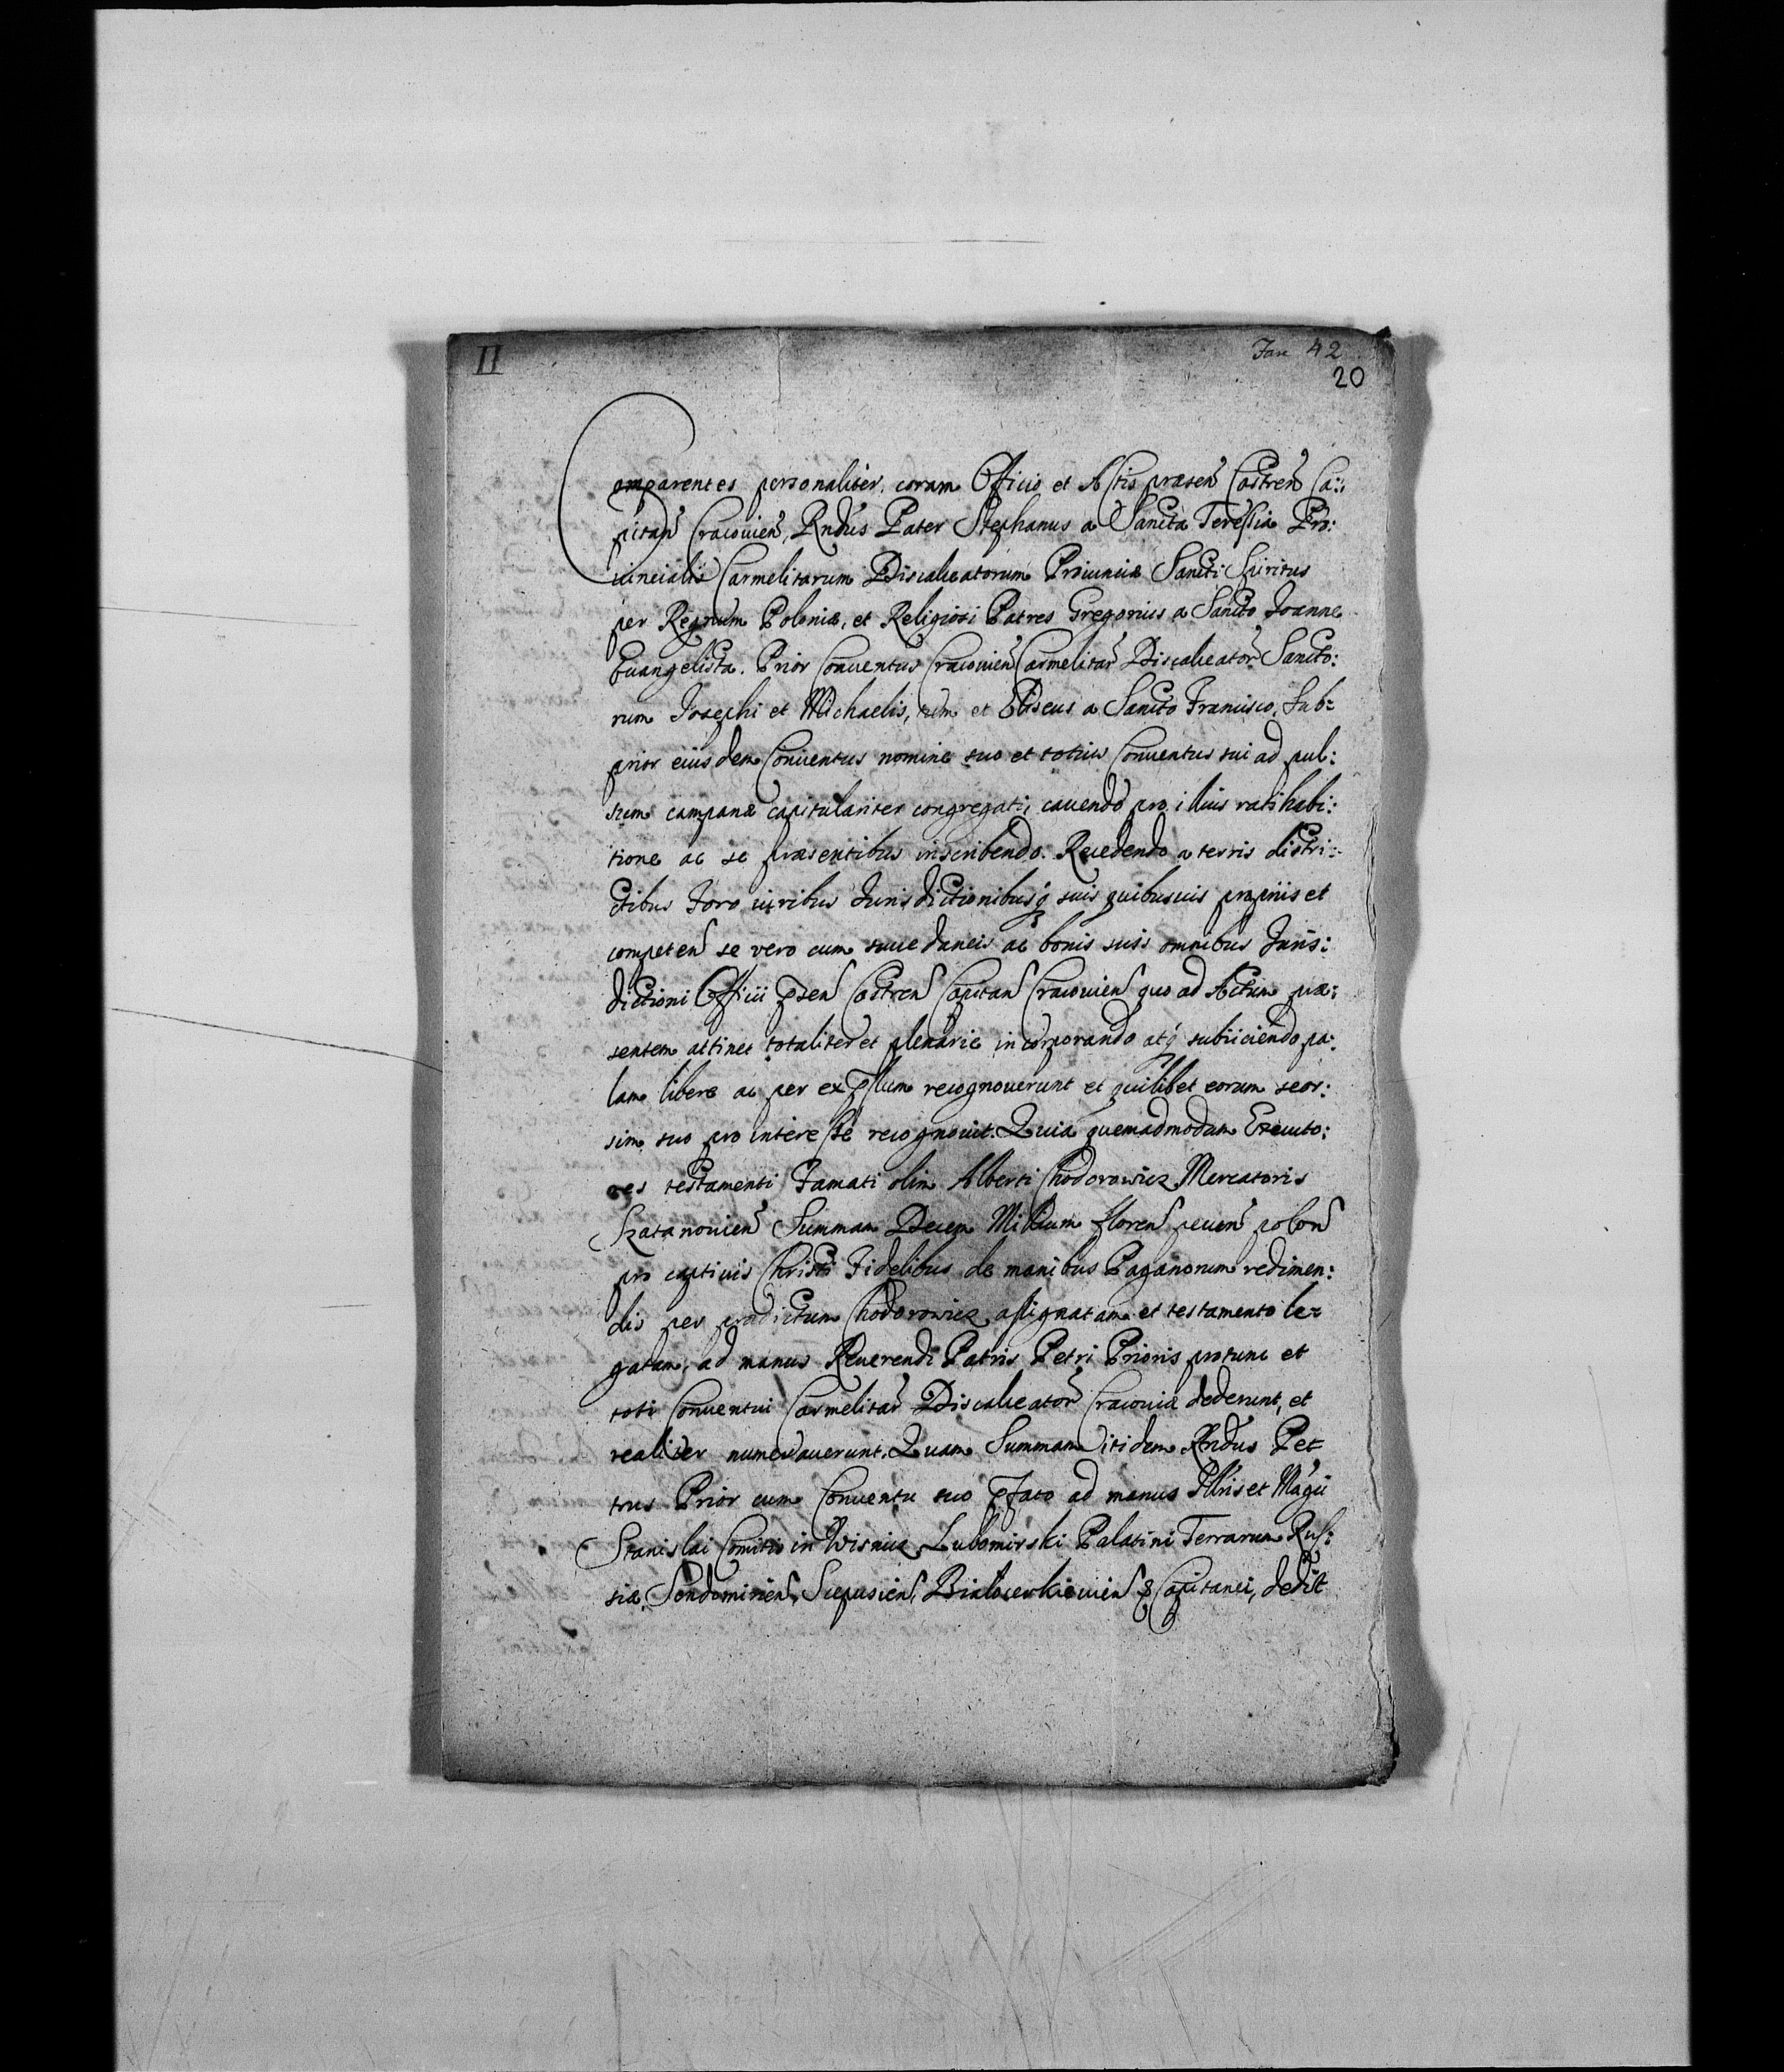 II
Fasc 42
20
Comparentes personaliter, coram Officio et Actis præsen Castren Ca:
pitan Cracouien, Rndus Pater Stephanus a Sancta Teressia Pro:
iuncialis Carmelitarum Discalceatorum Prouinciæ Sancti Spiritus
per Regnum Poloniæ, et Religiosi Patres Gregorius a Sancto Joanne
Euangelista. Prior Conuentus Cracouien Carmelitar Discalceator Sancto:
rum Josephi et Michaelis, tum et Eliseus a Sancto Francisco, Sub:
prior eiusdem Conuentus nomine suo et totius Conuentus sui ad pul:
sum campanæ capitulariter congregati, cauendo pro illius ratihabi:
tione ac se præsentibus inscribendo. Recedendo a terris distri:
ctibus Foro iuribus Jurisdictionibusq suis quibusuis proprijs et
competen se vero cum succedaneis ac bonis suis omnibus Juris:
dictioni Officii psen Castren Capitan Cracouien quo ad Actum præ:
sentem attinet totaliter et plenarie incorporando atq subiiciendo pa:
lam libere ac per expssum recognouerunt et quilibet eorum seor:
sim suo pro interesse recognouit. Quia quemadmodum Executo:
res testamenti Famati olim Alberti Chodorowicz Mercatoris
Szatanouien Summam Decem Millium floren pecun polon
pro captiuis Christi Fidelibus de manibus Paganorum redimen:
dis per prædictum Chodorowicz assignatam et testamento le:
gatam, ad manus Reuerendi Patris Petri Prioris protunc et
toti Conuentui Carmelitar Discalceator Cracouiæ dederunt, et
realiter numerauerunt. Quam Summam itidem Rndus Pet
trus Prior cum Conuentu suo pfato ad manus Illris et Magci
Stanislai Comitis in Wisnicz Lubomirski Palatini Terrarum Rus:
siæ, Sendomirien, Scepusien, Bialocerkieuien & Capitanei, dedit